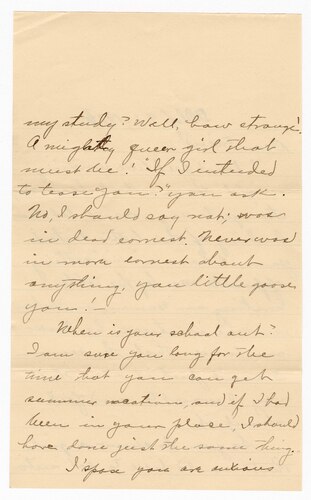 my study? Well, how strange!
A mighty queer girl that
must be! "If I intended
to tease you?" you ask.
No, I should say not; was
in dead earnest. Never was
in more earnest about
anything, you little goose
you! —
When is your school out?
I am sure you long for the
time that you can get
summer vacation, and if I had
been in your place, I should
have done just the same thing.
I 'spose you are anxious